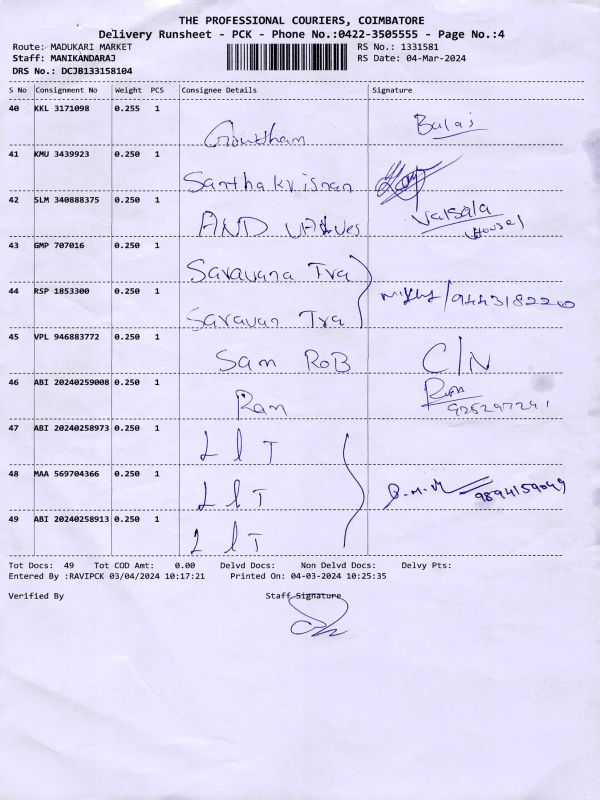 THE PROFESSIONAL COURIERS, COIMBATORE
Delivery Runsheet - PCK - Phone No.:0422-3505555 - Page No.:4
Route: MADUKARI MARKET RS No.: 1331581
Staff: MANIKANDARAJ RS Date: 04-Mar-2024
DRS No.: DCJB133158104
S No Consignment No Weight PCS Consignee Details Signature
40 KKL 3171098 0.255 1
Goutham Balaj
41 KMU 3439923 0.250 1
Santhakrisnan
42 SLM 340888375 0.250 1
AND valves Valsala
House
43 GMP 707016 0.250 1
Saravana Tra
44 RSP 1853300 0.250 1
Saravan Tra
45 VPL 946883772 0.250 1
Sam RoB C/N
46 ABI 20240259008 0.250 1
Ram Ram
9252972291
47 ABI 20240258973 0.250 1
L l T
48 MAA 569704366 0.250 1
L l T 9894159049
49 ABI 20240258913 0.250 1
L l T
Tot Docs: 49 Tot COD Amt: 0.00 Delvd Docs: Non Delvd Docs: Delvy Pts:
Entered By :RAVIPCK 03/04/2024 10:17:21 Printed On: 04-03-2024 10:25:35
Verified By Staff Signature